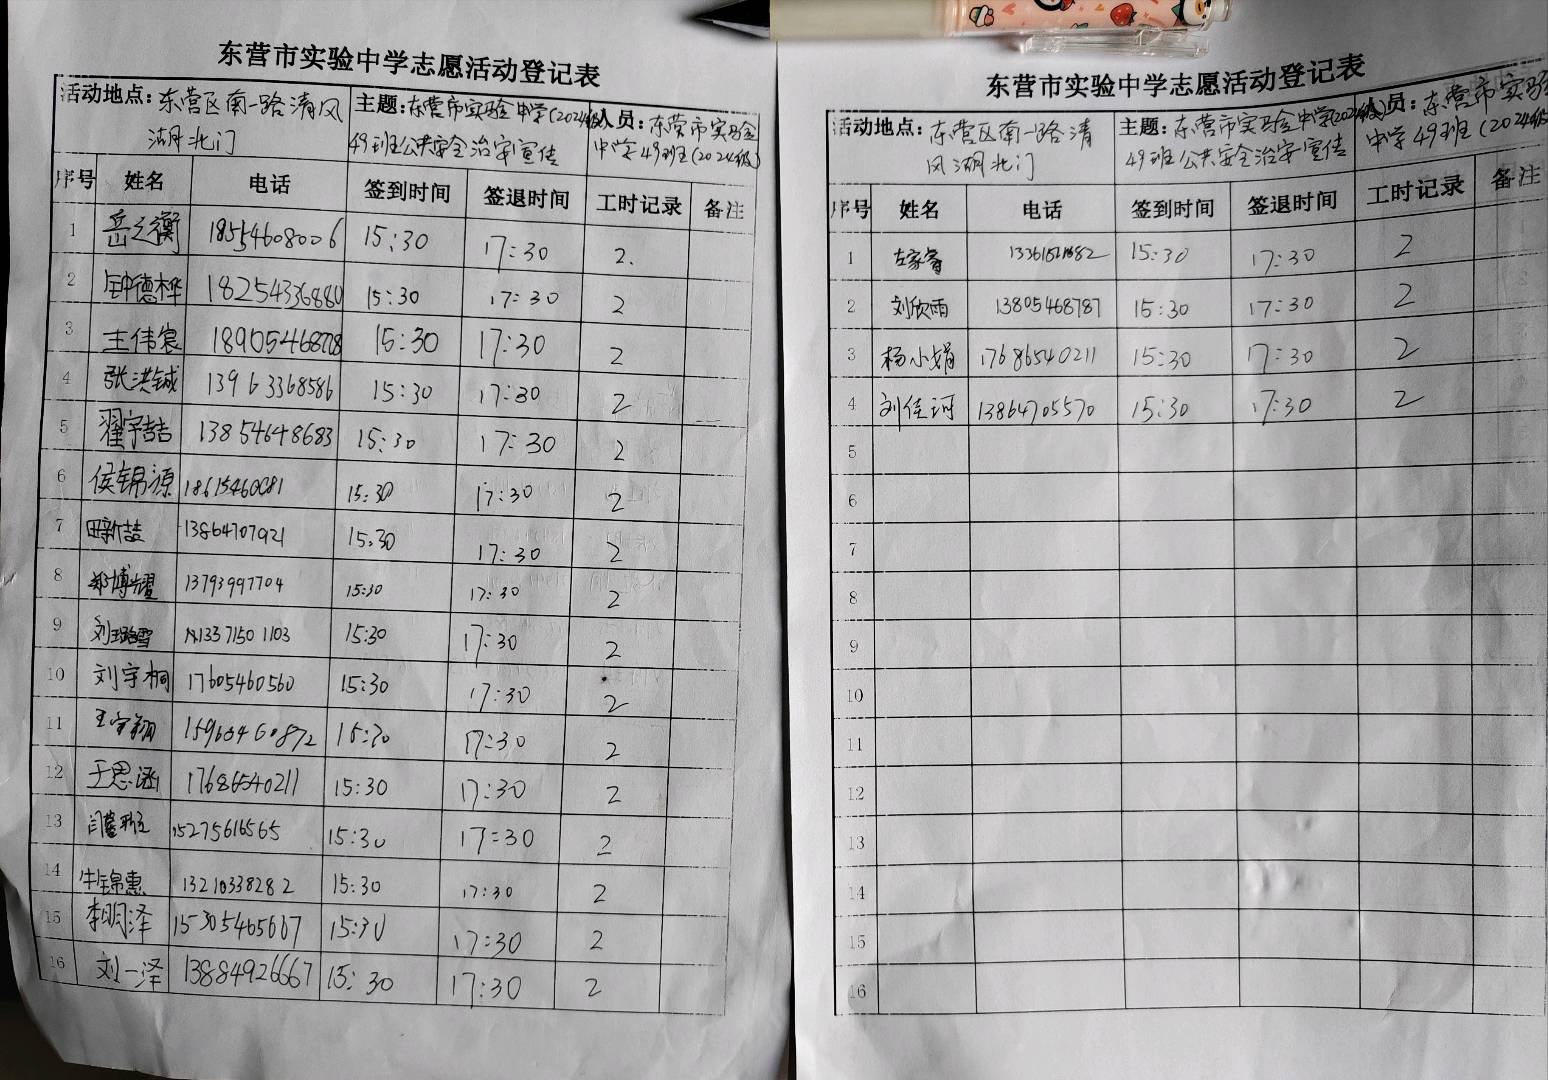 东营市实验中学志愿活动登记表
活动地点：东营区南一路清风湖北门 主题：东营市实验中学(2024级)49班公共安全治安宣传 人员：东营市实验中学49班(2024级)
序号 姓名 电话 签到时间 签退时间 工时记录 备注
1 岳之衡 18554608006 15:30 17:30 2.
2 钟德桦 18254336880 15:30 17:30 2
3 王伟宸 15:30 17:30 2
4 张洪铖 13963368586 15:30 17:30 2
5 翟宇喆 13854648683 15:30 17:30 2
6 侯锦源 15:30 17:30 2
7 田新喆 13864707921 15:30 17:30 2
8 郑博耀 13793997704 15:30 17:30 2
9 15:30 17:30 2
10 刘宇桐 17605460560 15:30 17:30 2
11 王宇翔 15:30 17:30 2
12 于思涵 17686540211 15:30 17:30 2
13 15275616565 15:30 17:30 2
14 牛锦惠 13210338282 15:30 17:30 2
15 李明泽 15305465667 15:30 17:30 2
16 刘一泽 13884926667 15:30 17:30 2
东营市实验中学志愿活动登记表
活动地点：东营区南一路清风湖北门 主题：东营市实验中学(2024级)49班公共安全治安宣传 人员：东营市实验中学49班(2024级
序号 姓名 电话 签到时间 签退时间 工时记录 备注
1 左家睿 15:30 17:30 2
2 刘欣雨 13805468787 15:30 17:30 2
3 杨小娟 17686540211 15:30 17:30 2
4 刘佳珂 13864705570 15:30 17:30 2
5
6
7
8
9
10
11
12
13
14
15
16